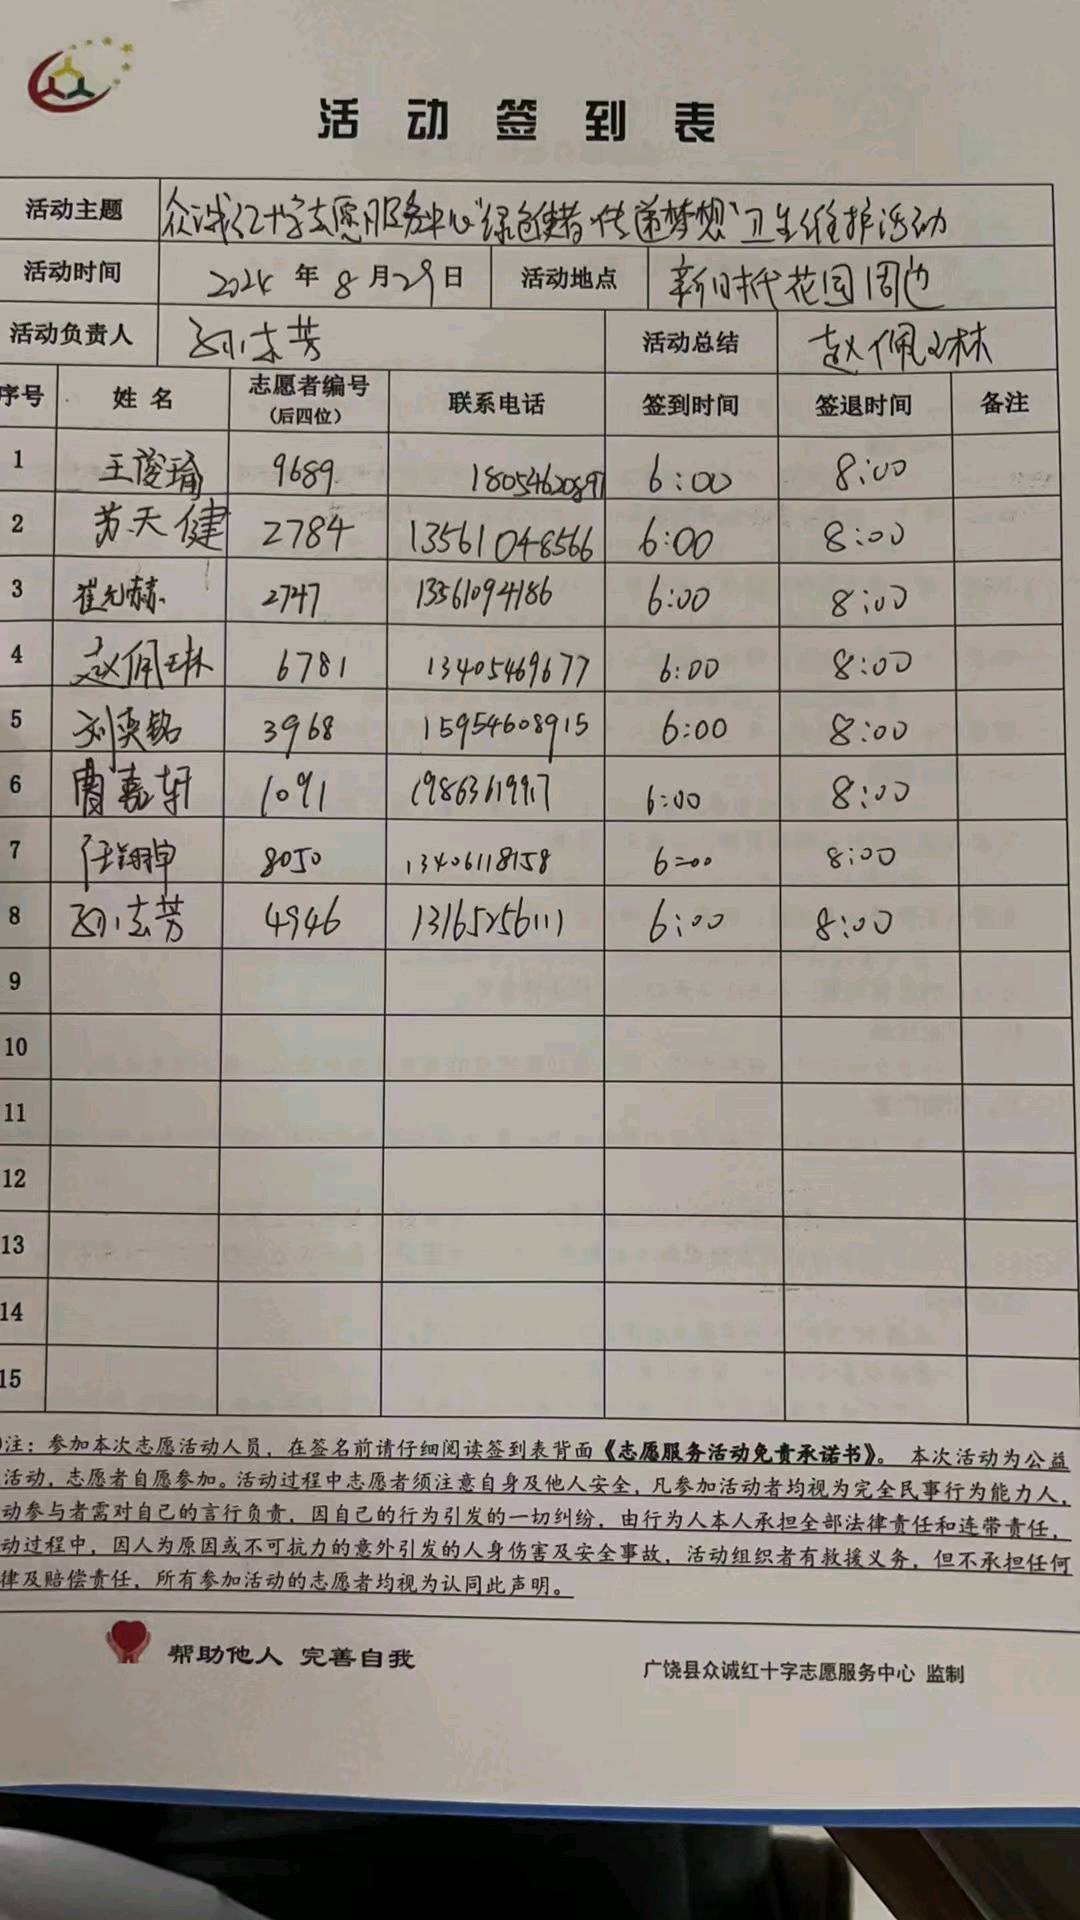 活动签到表
活动主题 众诚红十字志愿服务中心"绿色使者·传递梦想"卫生维护活动
活动时间 2024年8月29日 活动地点 新时代花园周边
活动负责人 活动总结 赵佩琳
序号 姓名 志愿者编号(后四位) 联系电话 签到时间 签退时间 备注
1 王俊瑜 9689 18054620897 6:00 8:00
2 苏天健 2784 13561048566 6:00 8:00
3 崔允赫 2747 13561094186 6:00 8:00
4 赵佩琳 6781 13405469677 6:00 8:00
5 刘奕铭 3968 15954608915 6:00 8:00
6 曹嘉轩 1091 6:00 8:00
7 8050 13406118158 6:00 8:00
8 4946 13165256111 6:00 8:00
9
10
11
12
13
14
15
注：参加本次志愿活动人员，在签名前请仔细阅读签到表背面《志愿服务活动免责承诺书》。本次活动为公益
活动，志愿者自愿参加。活动过程中志愿者须注意自身及他人安全，凡参加活动者均视为完全民事行为能力人，
动参与者需对自己的言行负责，因自己的行为引发的一切纠纷，由行为人本人承担全部法律责任和连带责任，
动过程中，因人为原因或不可抗力的意外引发的人身伤害及安全事故，活动组织者有救援义务，但不承担任何
律及赔偿责任，所有参加活动的志愿者均视为认同此声明。
帮助他人 完善自我
广饶县众诚红十字志愿服务中心 监制